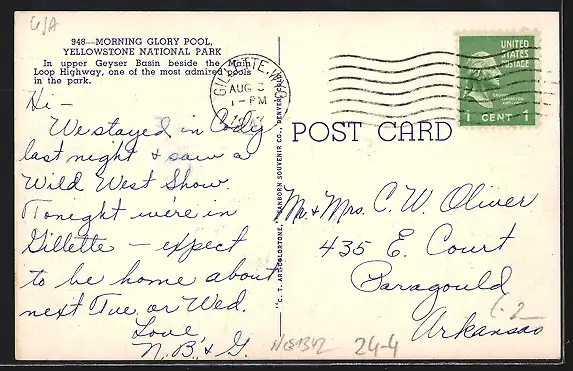 U/A
948—MORNING GLORY POOL,
YELLOWSTONE NATIONAL PARK
In upper Geyser Basin beside the Main
Loop Highway, one of the most admired pools
in the park.
Hi —
We stayed in Cody
last night & saw a
Wild West Show.
Tonight we're in
Gillette — expect
to be home about
next Tue. or Wed.
Love,
N.B. & G.
GILLETTE, WYO.
AUG 3
1-PM
UNITED
STATES
POSTAGE
1 CENT 1
POST CARD
Mr. & Mrs. C. W. Oliver
435 E. Court
Paragould
Arkansas
"C. T. ART-COLORTONE, SANBORN SOUVENIR CO., DENVER, COLO."
24-4